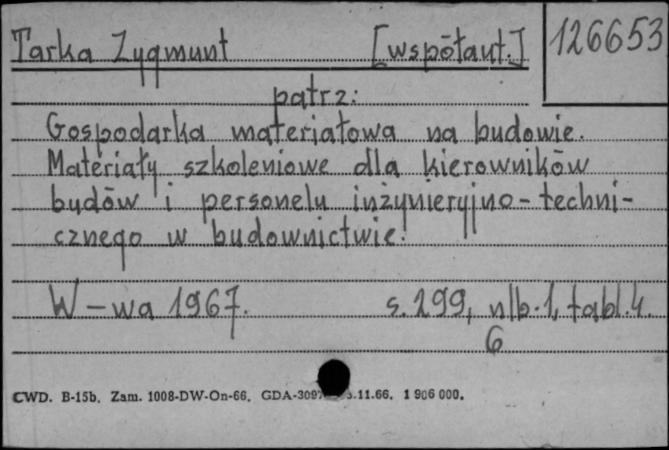 Tarka Zygmunt [współaut.] 126653
patrz:
Gospodarka materiałowa na budowie.
Materiały szkoleniowe dla kierowników
budów i personelu inżynieryjno-techni-
cznego w budownictwie.
W-wa 1967. s. 299, nlb. 1, tabl. 4.
6
CWD. B-15b. Zam. 1008-DW-On-66. .11.66. 1 906 000.